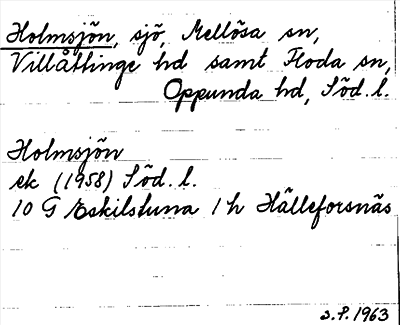 Holmsjön, sjö, Mellösa sn,
Villåttinge hd samt Floda sn,
Oppunda hd, Söd. l.
Holmsjön
ek (1958) Söd. l.
10 G Eskilstuna 1 h Hälleforsnäs
S.P. 1963